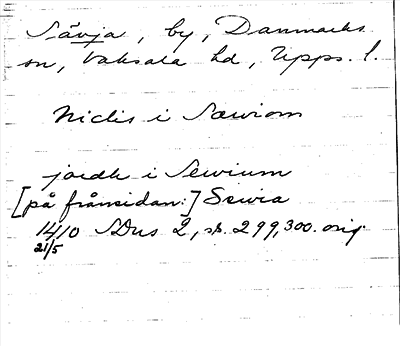 Sävja, by, Danmarks
sn, Vaksala hd, Upps. l.
Niclis i Sæwiom
jordh i Sewium
[på frånsidan:] Sewia
1410 SDns 2, s. 299, 300. orig.
21/5